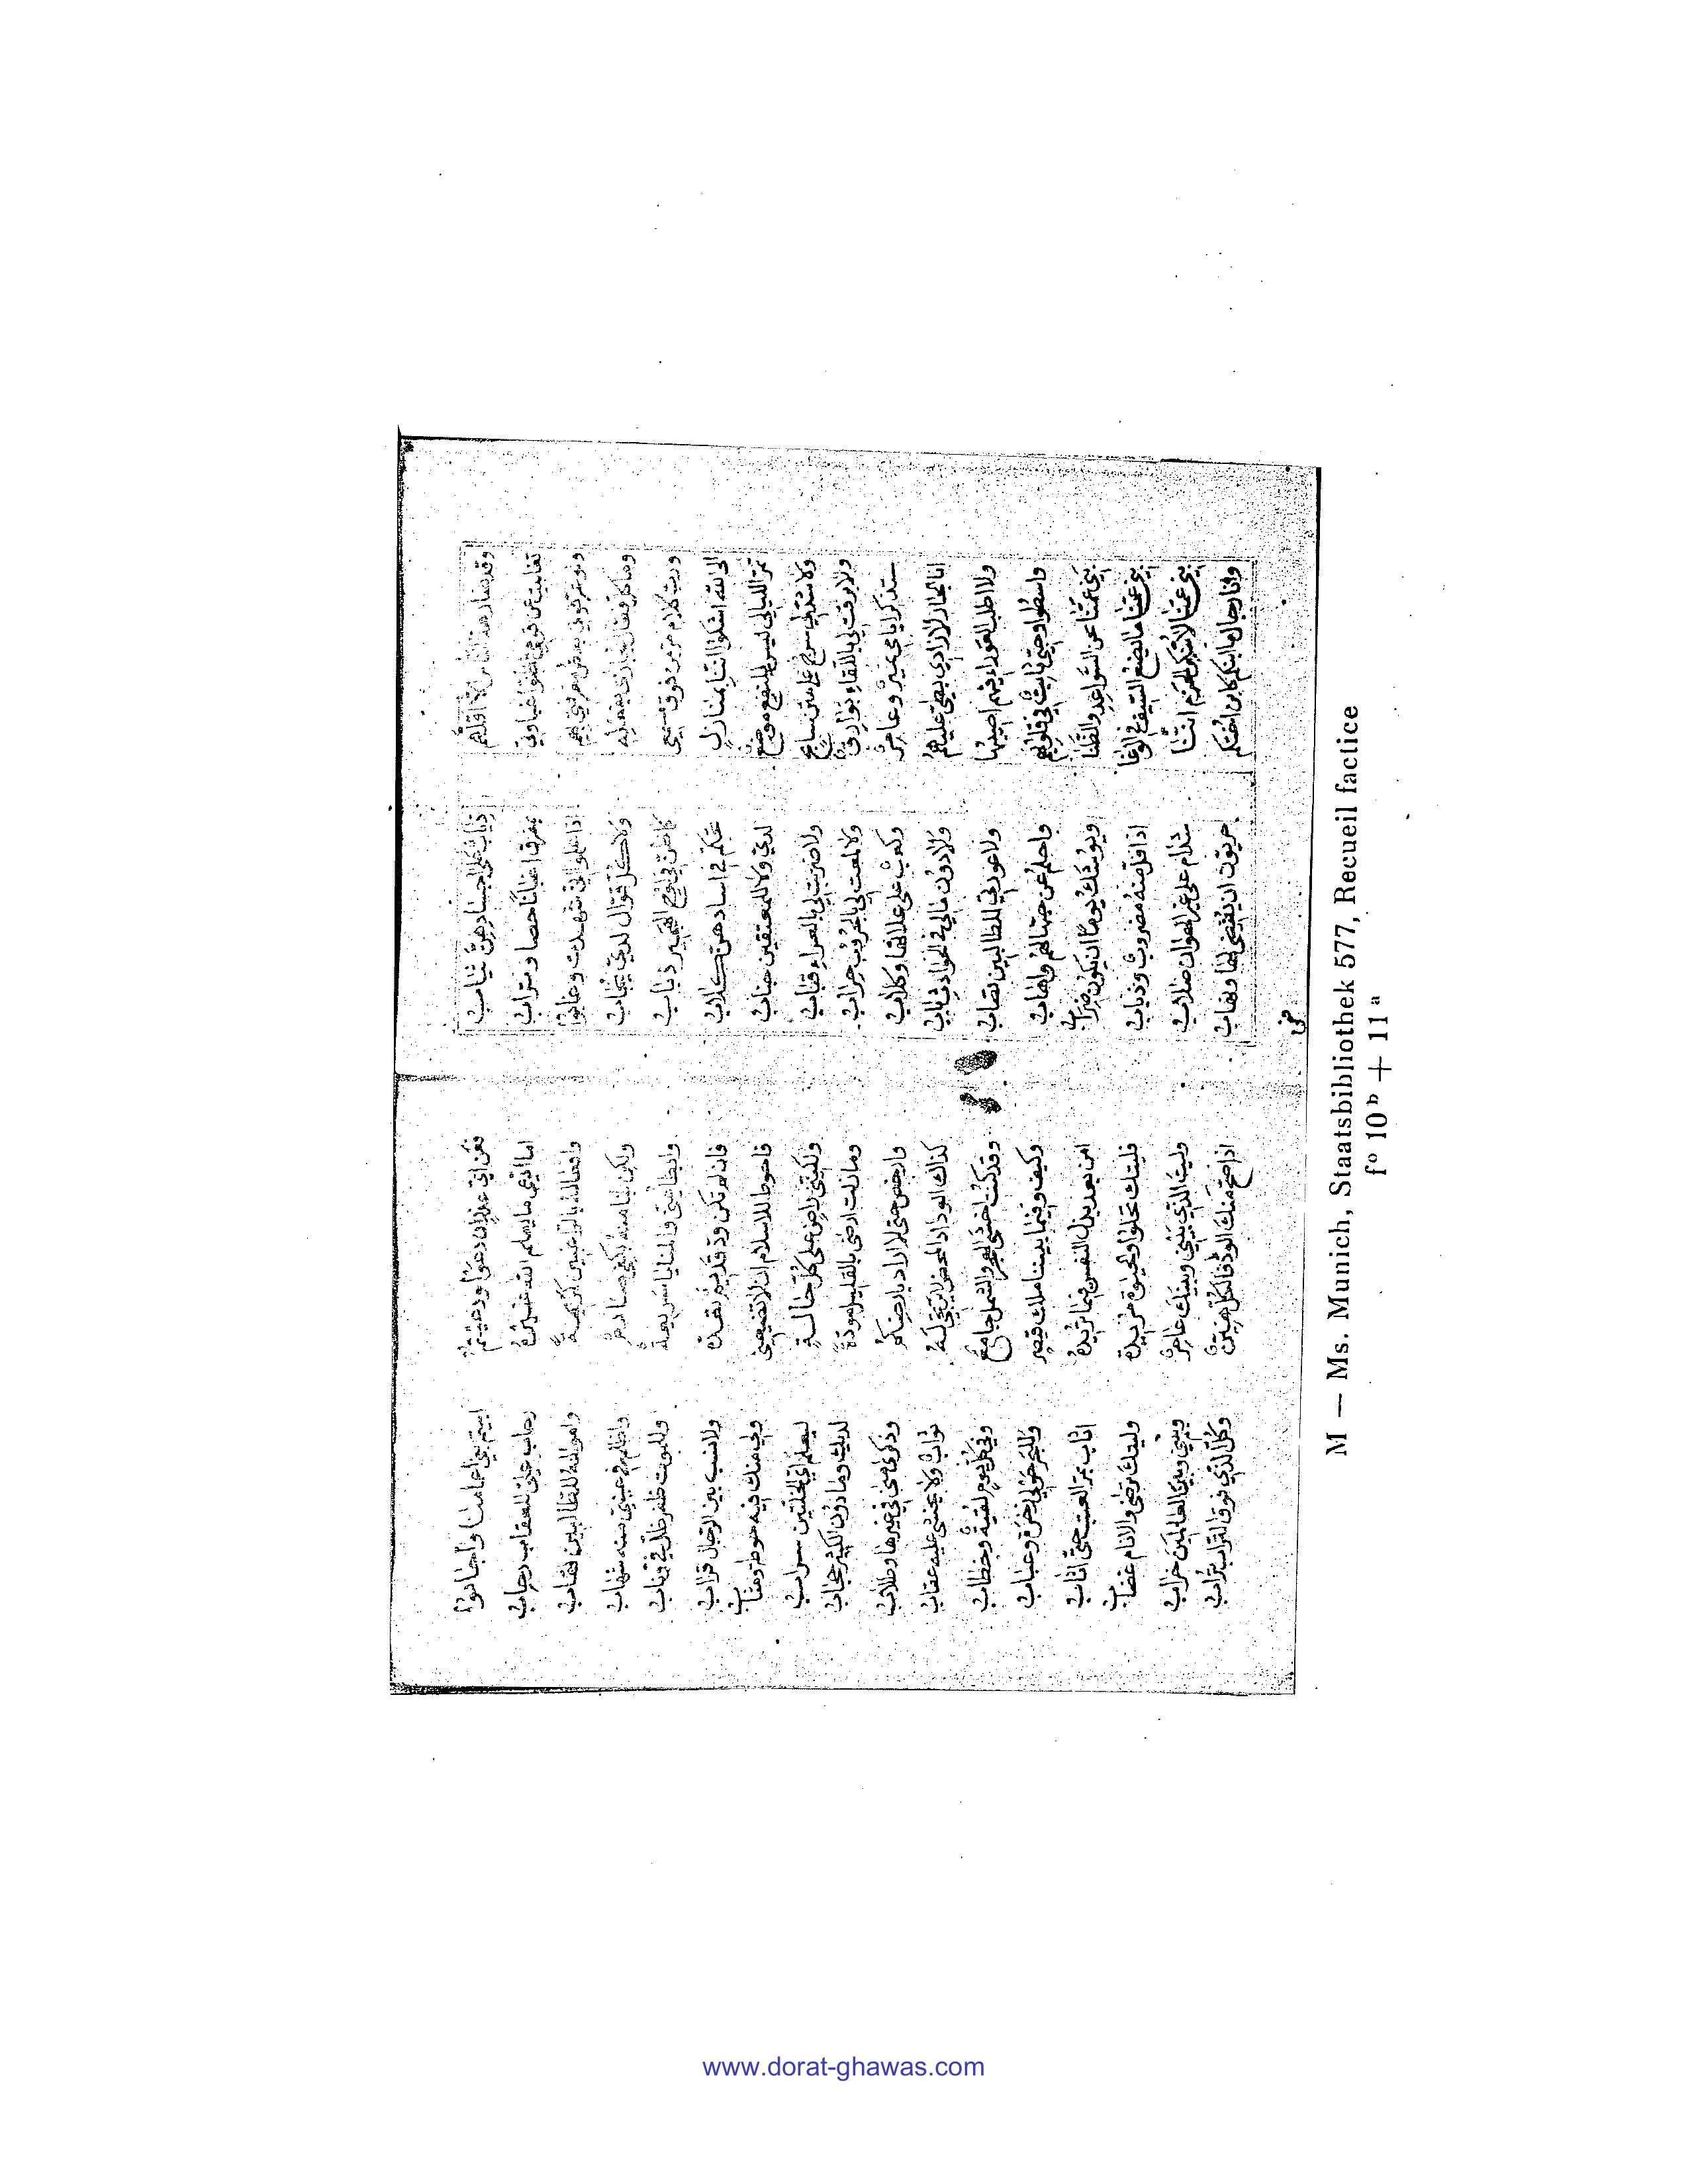 وقد صار هذا الناس الا اقلهم ذئاب على اجسادهن ثياب
تغابيت عن قومي فظنوا غباوتي بمفرق اغبانا حصا وتراب
ولو عرفوني بعض معرفتي بهم اذا علموا اني شهدت وغابوا
وما كل فعال يجازى بفعله ولا كل قوال لدي يجاب
ورب كلام مر من فوق مسمعي كما طن في لوح الهجير ذباب
الى الله اشكوا اننا بمنازل تحكم في اسادهن كلاب
تمر الليالي ليس للنفع موضع لدي ولا للمعتفين جناب
ولا شد لي سرج على متن سابح ولا ضربت لي بالعراء قباب
ولا برقت لي باللقاء بوارق ولا لمعت لي بالحروب حراب
ستذكر ايامي نمير وعامر وكعب على علاتها وكلاب
انا الجار لا زادي بطي عليهم ولا دون مالي في الحوادث باب
ولا اطلب العوراء فيهم اصيبها ولا عورتي للطالبين تصاب
واسطوا وحبي ثابت في قلوبهم واحلم عن جهالهم واهاب
بني عمنا عن السواعد والظبا ويوشك يوما ان يكون ضراب
بني عمنا ما يصنع السيف في الوغا اذا فل منه مضرب وذباب
بني عمنا لا اننا شداد على غير الهوان صلاب
وانا رجال ما ابنكم كابن اختكم حريون ان يقضى لها ونهاب
فعن اي عذر ان دعوا ودعيتم ابيتم بني اعمامنا واجابوا
اما ادعي ما يعلم الله غيره رحاب علي للعفاة رحاب
وافعاله بالراغبين كريمة وامواله للطالبين نهاب
ولكن نبا منه بكفي صارم واظلم في عيني منه شهاب
وابطا عني والمنايا سريعة وللموت ظفر ظل في وناب
فان لم تكن ود قديم نعده ولا نسب بين الرجال قراب
فاحوط للاسلام ان لا تضيعني ولي منك فيه حوط ومناب
ولكنني راض على كل حالة ليعلم اي الخلتين سراب
وما زلت ارضى بالقليل مودة لديك وما دون الكثير حجاب
وارخص حتى لا اراد بارضكم وذكرى منى في غيرها وطلاب
كذاك الوداد المحض لا يرتجى له ثواب ولا يخشى عليه عقاب
وقد كنت اخشى الهجر والشمل جامع وفي كل يوم لقية وخطاب
وكيف وفيما بيننا ملك قيصر وللبحر حولي زخرة وعباب
امن بعد بذل النفس فيما تريده اثاب بمر العتب حتى اثاب
فليتك تحلوا والحيوة مريرة وليتك ترضى والانام غضاب
وليت الذي بيني وبينك عامر وبيني وبين العالمين خراب
اذا صح منك الود فالكل هين وكل الذي فوق التراب تراب
M — Ms. Munich, Staatsbibliothek 577, Recueil factice
fº 10ᵇ + 11ᵃ
www.dorat-ghawas.com